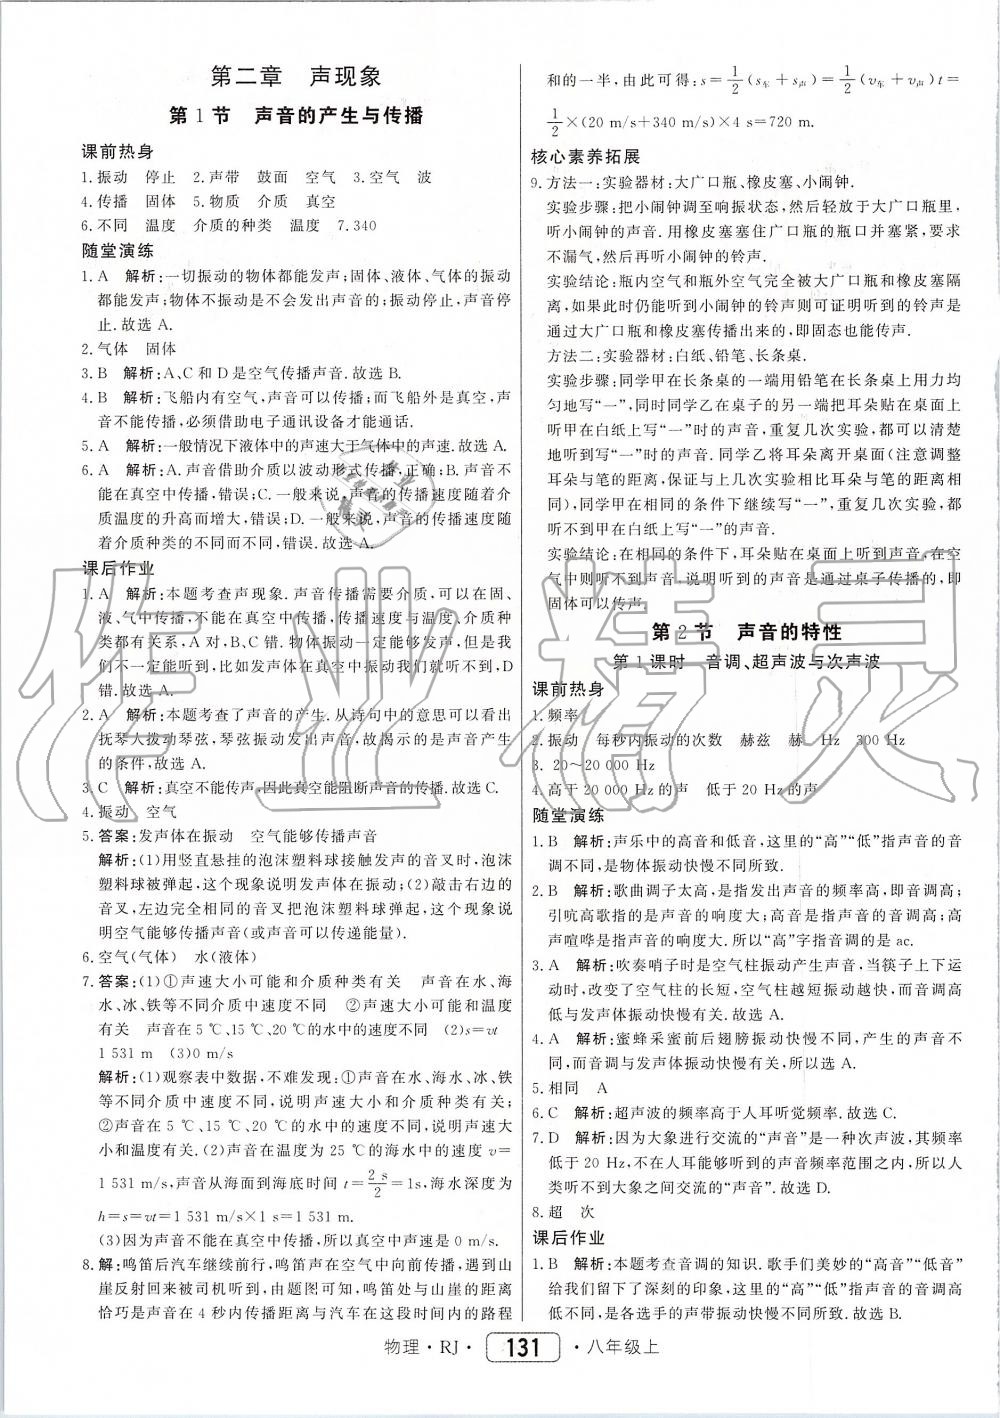 第二章　声现象
第1节　声音的产生与传播
课前热身
1.振动　停止　2.声带　鼓面　空气　3.空气　波
4.传播　固体　5.物质　介质　真空
6.不同　温度　介质的种类　温度　7.340
随堂演练
1.A　解析:一切振动的物体都能发声;固体、液体、气体的振动
都能发声;物体不振动是不会发出声音的;振动停止,声音停
止.故选 A.
2.气体　固体
3.B　解析:A、C 和 D 是空气传播声音.故选 B.
4.B　解析:飞船内有空气,声音可以传播;而飞船外是真空,声
音不能传播,必须借助电子通讯设备才能通话.
5.A　解析:一般情况下液体中的声速大于气体中的声速.故选 A.
6.A　解析:A.声音借助介质以波动形式传播,正确;B.声音不
能在真空中传播,错误;C.一般来说,声音的传播速度随着介
质温度的升高而增大,错误;D.一般来说,声音的传播速度随
着介质种类的不同而不同,错误.故选 A.
课后作业
1.A　解析:本题考查声现象.声音传播需要介质,可以在固、
液、气中传播,不能在真空中传播,传播速度与温度、介质种
类都有关系,A 对,B、C 错.物体振动一定能够发声,但是我
们不一定能听到,比如发声体在真空中振动就听不到,D
错.故选 A.
2.A　解析:本题考查了声音的产生.从诗句中的意思可以看出
抚琴人拨动琴弦,琴弦振动发出声音,故揭示的是声音产生
的条件,故选 A.
3.C　解析:真空不能传声,因此真空能阻断声音的传播.故选 C.
4.振动　空气
5.答案:发声体在振动　空气能够传播声音
解析:(1)用竖直悬挂的泡沫塑料球接触发声的音叉时,泡沫
塑料球被弹起,这个现象说明发声体在振动;(2)敲击右边的
音叉,左边完全相同的音叉把泡沫塑料球弹起,这个现象说
明空气能够传播声音(或声音可以传递能量).
6.空气(气体)　水(液体)
7.答案:(1)①声速大小可能和介质种类有关　声音在水、海
水、冰、铁等不同介质中速度不同　②声速大小可能和温度
有关　声音在 5 ℃、15 ℃、20 ℃的水中的速度不同　(2)s=vt
1 531 m　(3)0 m/s
解析:(1)观察表中数据,不难发现:①声音在水、海水、冰、铁
等不同介质中速度不同,说明声速大小和介质种类有关;
②声音在 5 ℃、15 ℃、20 ℃的水中的速度不同,说明声速大
小和温度有关.(2)声音在温度为 25 ℃的海水中的速度 v=
1 531 m/s,声音从海面到海底时间 t=2 s/2=1s,海水深度为
h=s=vt=1 531 m/s×1 s=1 531 m.
(3)因为声音不能在真空中传播,所以真空中声速是 0 m/s.
8.解:鸣笛后汽车继续前行,鸣笛声在空气中向前传播,遇到山
崖反射回来被司机听到,由题图可知,鸣笛处与山崖的距离
恰巧是声音在 4 秒内传播距离与汽车在这段时间内的路程
和的一半,由此可得:s=1/2(s车+s声)=1/2(v车+v声)t=
1/2×(20 m/s+340 m/s)×4 s=720 m.
核心素养拓展
9.方法一:实验器材:大广口瓶、橡皮塞、小闹钟.
实验步骤:把小闹钟调至响振状态,然后轻放于大广口瓶里,
听小闹钟的声音.用橡皮塞塞住广口瓶的瓶口并塞紧,要求
不漏气,然后再听小闹钟的铃声.
实验结论:瓶内空气和瓶外空气完全被大广口瓶和橡皮塞隔
离,如果此时仍能听到小闹钟的铃声则可证明听到的铃声是
通过大广口瓶和橡皮塞传播出来的,即固态也能传声.
方法二:实验器材:白纸、铅笔、长条桌.
实验步骤:同学甲在长条桌的一端用铅笔在白纸上用力均
匀地写“一”,同时同学乙在桌子的另一端把耳朵贴在桌面上
听甲在白纸上写“一”时的声音,重复几次实验,都可以清楚
地听到写“一”的声音.同学乙将耳朵离开桌面(注意调整
耳朵与笔的距离,保证与上几次实验相比耳朵与笔的距离相
同),同学甲在相同的条件下继续写“一”,重复几次实验,都
听不到甲在白纸上写“一”的声音.
实验结论:在相同的条件下,耳朵贴在桌面上听到声音,在空
气中则听不到声音,说明听到的声音是通过桌子传播的,即
固体可以传声.
第2节　声音的特性
第1课时　音调、超声波与次声波
课前热身
1.频率
2.振动　每秒内振动的次数　赫兹　赫　Hz　300 Hz
3. 20～20 000 Hz
4.高于 20 000 Hz 的声　低于 20 Hz 的声
随堂演练
1.B　解析:声乐中的高音和低音,这里的“高”“低”指声音的音
调不同,是物体振动快慢不同所致.
2.B　解析:歌曲调子太高,是指发出声音的频率高,即音调高;
引吭高歌指的是声音的响度大;高音是指声音的音调高;高
声喧哗是指声音的响度大.所以“高”字指音调的是 ac.
3.A　解析:吹奏哨子时是空气柱振动产生声音,当筷子上下运
动时,改变了空气柱的长短,空气柱越短振动越快,而音调高
低与发声体振动快慢有关.故选 A.
4.A　解析:蜜蜂采蜜前后翅膀振动快慢不同,产生的声音不
同,而音调与发声体振动快慢有关.所以选 A.
5.相同　A
6.C　解析:超声波的频率高于人耳听觉频率.故选 C.
7.D　解析:因为大象进行交流的“声音”是一种次声波,其频率
低于 20 Hz,不在人耳能够听到的声音频率范围之内,所以人
类听不到大象之间交流的“声音”.故选 D.
8.超　次
课后作业
1.B　解析:本题考查音调的知识.歌手们美妙的“高音”“低音”
给我们留下了深刻的印象,这里的“高”“低”指声音的音调高
低不同,是各选手的声带振动快慢不同所致.故选 B.
物理·RJ·　131　·八年级上
作业精灵